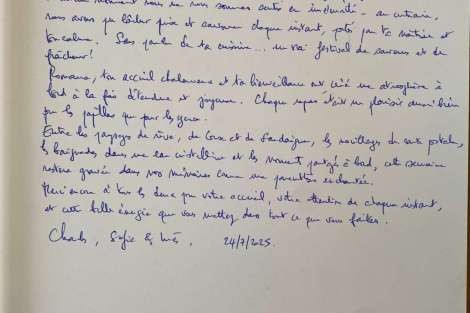 moment nous ne nous sommes sentis en insécurité - au contraire,
nous avons pu lâcher prise et savourer chaque instant, porté par ta maîtrise et
ton calme. Sans parler de ta cuisine... un vrai festival de saveurs et de
fraîcheur!
Romane, ton accueil chaleureux et ta bienveillance ont créé une atmosphère à
bord à la fois détendue et joyeuse. Chaque repas était un plaisir aussi bien
pour les papilles que pour les yeux.
Entre les paysages de rêve, de Corse et de Sardaigne, les mouillages de carte postale,
les baignades dans une eau cristalline et les moments partagés à bord, cette semaine
restera gravée dans nos mémoires comme une parenthèse enchantée.
Merci encore à tous les deux pour votre accueil, votre attention de chaque instant,
et cette belle énergie que vous mettez dans tout ce que vous faites.
Charles, Sofie & Inès, 24/7/2025.